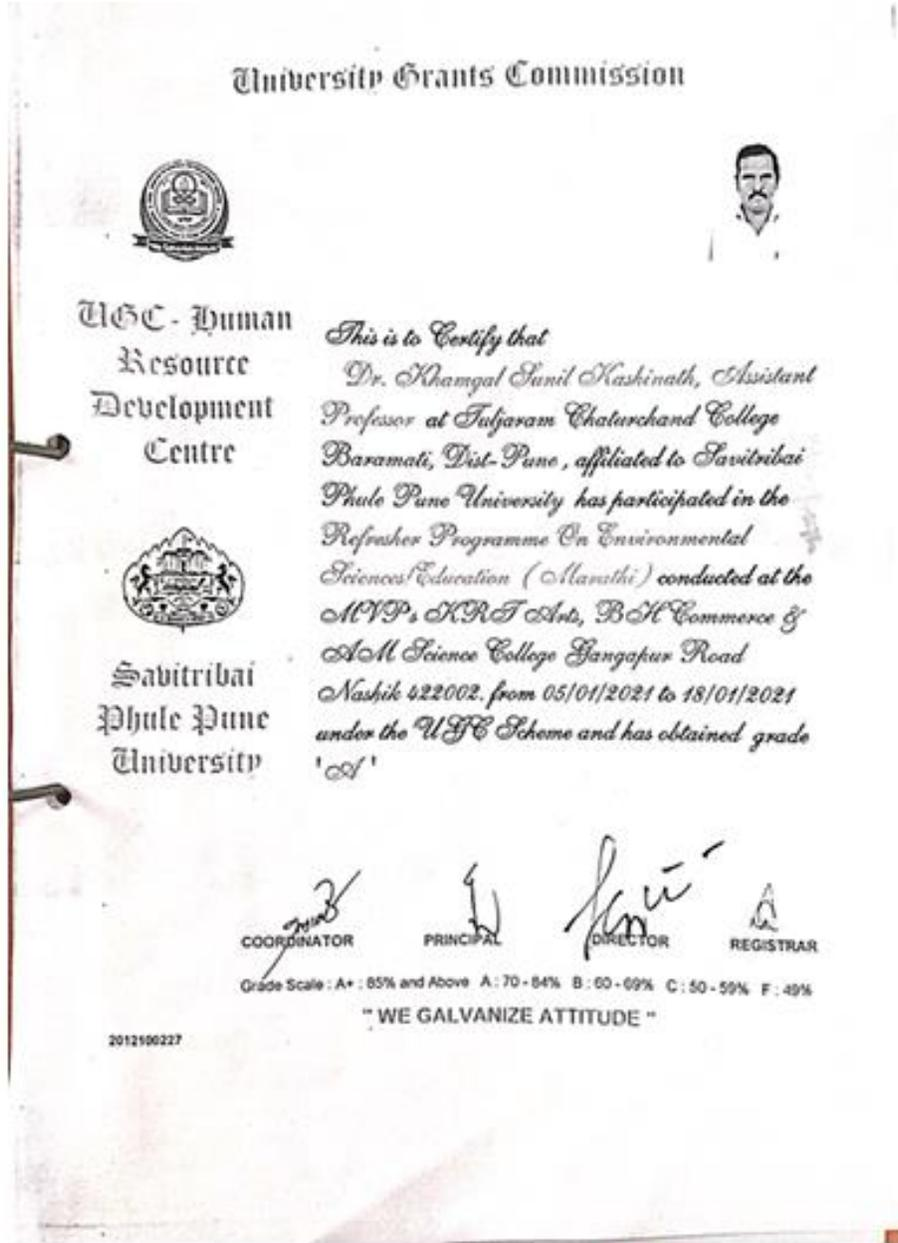 University Grants Commission
UGC - Human
Resource
Development
Centre
Savitribai
Phule Pune
University
This is to Certify that
Dr. Khamgal Sunil Kashinath, Assistant
Professor at Tuljaram Chaturchand College
Baramati, Dist-Pune, affiliated to Savitribai
Phule Pune University has participated in the
Refresher Programme On Environmental
Sciences/Education (Marathi) conducted at the
MVP's KRT Arts, BH Commerce &
AM Science College Gangapur Road
Nashik 422002. from 05/01/2021 to 18/01/2021
under the UGC Scheme and has obtained grade
'A'
COORDINATOR PRINCIPAL DIRECTOR REGISTRAR
Grade Scale : A+ : 85% and Above A : 70 - 84% B : 60 - 69% C : 50 - 59% F : 49%
" WE GALVANIZE ATTITUDE "
2012100227